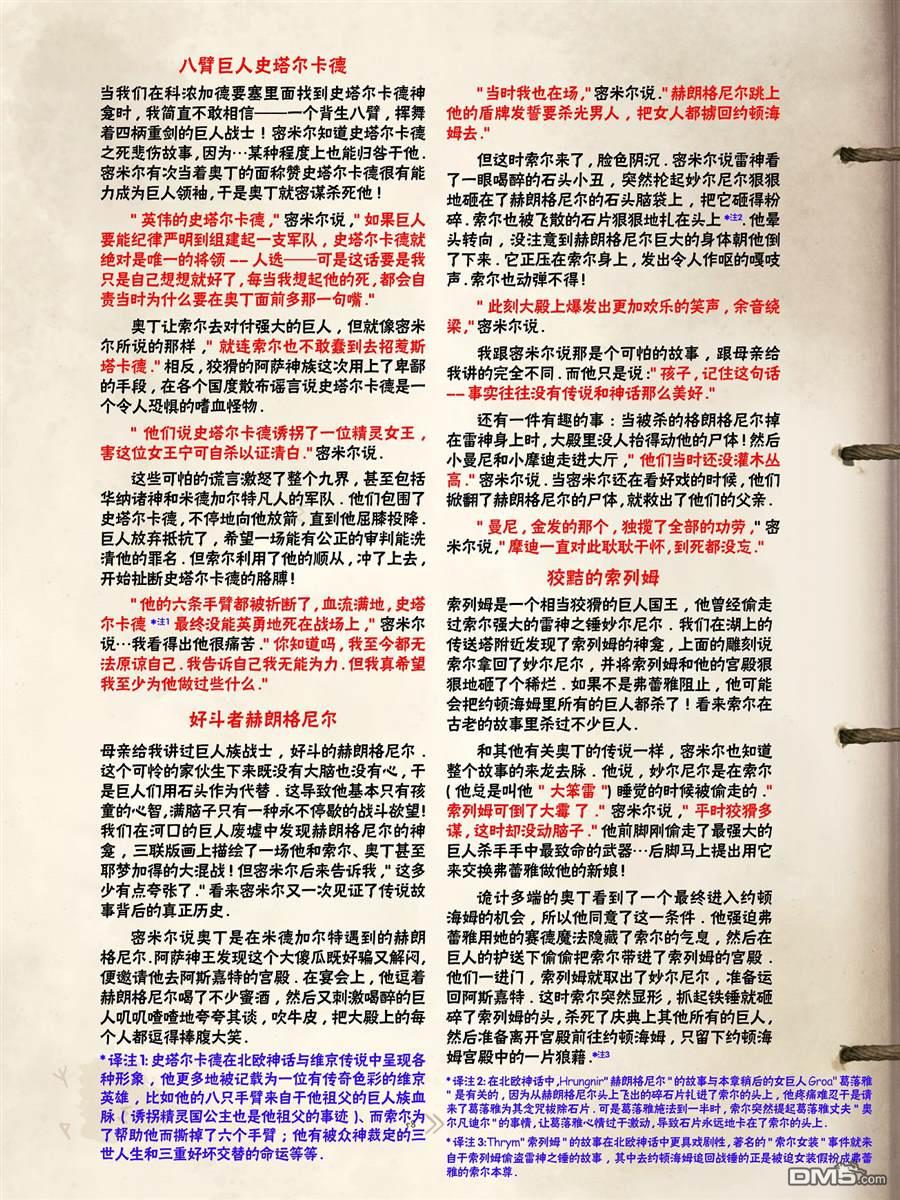 八臂巨人史塔尔卡德
当我们在科浓加德要塞里面找到史塔尔卡德神
龛时，我简直不敢相信——一个背生八臂，挥舞
着四柄重剑的巨人战士！密米尔知道史塔尔卡德
之死悲伤故事,因为…某种程度上也能归咎于他.
密米尔有次当着奥丁的面称赞史塔尔卡德很有能
力成为巨人领袖,于是奥丁就密谋杀死他！
"英伟的史塔尔卡德,"密米尔说,"如果巨人
要能纪律严明到组建起一支军队，史塔尔卡德就
绝对是唯一的将领--人选——可是这话要是我
只是自己想想就好了,每当我想起他的死,都会自
责当时为什么要在奥丁面前多那一句嘴."
奥丁让索尔去对付强大的巨人，但就像密米
尔所说的那样,"就连索尔也不敢蠢到去招惹斯
塔卡德."相反，狡猾的阿萨神族这次用上了卑鄙
的手段，在各个国度散布谣言说史塔尔卡德是一
个令人恐惧的嗜血怪物.
"他们说史塔尔卡德诱拐了一位精灵女王，
害这位女王宁可自杀以证清白."密米尔说.
这些可怕的谎言激怒了整个九界，甚至包括
华纳诸神和米德加尔特凡人的军队．他们包围了
史塔尔卡德,不停地向他放箭,直到他屈膝投降．
巨人放弃抵抗了，希望一场能有公正的审判能洗
清他的罪名．但索尔利用了他的顺从，冲了上去，
开始扯断史塔尔卡德的胳膊！
"他的六条手臂都被折断了,血流满地,史塔
尔卡德*注1最终没能英勇地死在战场上,"密米尔
说…我看得出他很痛苦."你知道吗，我至今都无
法原谅自己.我告诉自己我无能为力.但我真希望
我至少为他做过些什么."
好斗者赫朗格尼尔
母亲给我讲过巨人族战士，好斗的赫朗格尼尔．
这个可怜的家伙生下来既没有大脑也没有心，于
是巨人们用石头作为代替．这导致他基本只有孩
童的心智,满脑子只有一种永不停歇的战斗欲望!
我们在河口的巨人废墟中发现赫朗格尼尔的神
龛，三联版画上描绘了一场他和索尔、奥丁甚至
耶梦加得的大混战！但密米尔后来告诉我,"这多
少有点夸张了."看来密米尔又一次见证了传说故
事背后的真正历史.
密米尔说奥丁是在米德加尔特遇到的赫朗
格尼尔.阿萨神王发现这个大傻瓜既好骗又解闷，
便邀请他去阿斯嘉特的宫殿．在宴会上，他逗着
赫朗格尼尔喝了不少蜜酒，然后又刺激喝醉的巨
人叽叽喳喳地夸夸其谈，吹牛皮，把大殿上的每
个人都逗得捧腹大笑.
*译注1:史塔尔卡德在北欧神话与维京传说中呈现各
种形象，他更多地被记载为一位有传奇色彩的维京
英雄，比如他的八只手臂来自于他祖父的巨人族血
脉（诱拐精灵国公主也是他祖父的事迹）、而索尔为
了帮助他而撕掉了六个手臂；他有被众神裁定的三
世人生和三重好坏交替的命运等等.
"当时我也在场,"密米尔说."赫朗格尼尔跳上
他的盾牌发誓要杀光男人，把女人都掳回约顿海
姆去."
但这时索尔来了，脸色阴沉．密米尔说雷神看
了一眼喝醉的石头小丑，突然抡起妙尔尼尔狠狠
地砸在了赫朗格尼尔的石头脑袋上，把它砸得粉
碎.索尔也被飞散的石片狠狠地扎在头上*注2.他晕
头转向，没注意到赫朗格尼尔巨大的身体朝他倒
了下来．它正压在索尔身上，发出令人作呕的嘎吱
声.索尔也动弹不得！
"此刻大殿上爆发出更加欢乐的笑声，余音绕
梁,"密米尔说.
我跟密米尔说那是个可怕的故事，跟母亲给
我讲的完全不同．而他只是说："孩子，记住这句话
--事实往往没有传说和神话那么美好."
还有一件有趣的事：当被杀的格朗格尼尔掉
在雷神身上时,大殿里没人抬得动他的尸体！然后
小曼尼和小摩迪走进大厅,"他们当时还没灌木丛
高."密米尔说．当密米尔还在看好戏的时候，他们
掀翻了赫朗格尼尔的尸体,就救出了他们的父亲．
"曼尼，金发的那个，独揽了全部的功劳,"密
米尔说,"摩迪一直对此耿耿于怀,到死都没忘."
狡黠的索列姆
索列姆是一个相当狡猾的巨人国王，他曾经偷走
过索尔强大的雷神之锤妙尔尼尔．我们在湖上的
传送塔附近发现了索列姆的神龛，上面的雕刻说
索尔拿回了妙尔尼尔，并将索列姆和他的宫殿狠
狠地砸了个稀烂．如果不是弗蕾雅阻止，他可能
会把约顿海姆里所有的巨人都杀了！看来索尔在
古老的故事里杀过不少巨人.
和其他有关奥丁的传说一样，密米尔也知道
整个故事的来龙去脉．他说，妙尔尼尔是在索尔
(他总是叫他"大笨雷")睡觉的时候被偷走的."
索列姆可倒了大霉了."密米尔说,"平时狡猾多
谋,这时却没动脑子."他前脚刚偷走了最强大的
巨人杀手手中最致命的武器…后脚马上提出用它
来交换弗蕾雅做他的新娘！
诡计多端的奥丁看到了一个最终进入约顿
海姆的机会，所以他同意了这一条件．他强迫弗
蕾雅用她的赛德魔法隐藏了索尔的气息，然后在
巨人的护送下偷偷把索尔带进了索列姆的宫殿．
他们一进门，索列姆就取出了妙尔尼尔，准备运
回阿斯嘉特．这时索尔突然显形，抓起铁锤就砸
碎了索列姆的头,杀死了庆典上其他所有的巨人，
然后准备离开宫殿前往约顿海姆，只留下约顿海
姆宫殿中的一片狼藉.*注3
*译注2:在北欧神话中,Hrungnir"赫朗格尼尔"的故事与本章稍后的女巨人Groa"葛落雅
"是有关的，因为从赫朗格尼尔头上飞出的碎石片扎进了索尔的头，他疼痛难忍于是请
来了葛落雅为其念咒拔除石片．可是葛落雅施法到一半时，索尔突然提起葛落雅丈夫"奥
尔凡迪尔"的事情，让葛落雅心情过于激动,导致石片永远地卡在了索尔的头上.
*译注3:Thrym"索列姆"的故事在北欧神话中更具戏剧性，著名的"索尔女装"事件就来
自于索列姆偷盗雷神之锤的故事，其中去约顿海姆追回战锤的正是被迫女装假扮成弗蕾
雅的索尔本尊.
DM5.com